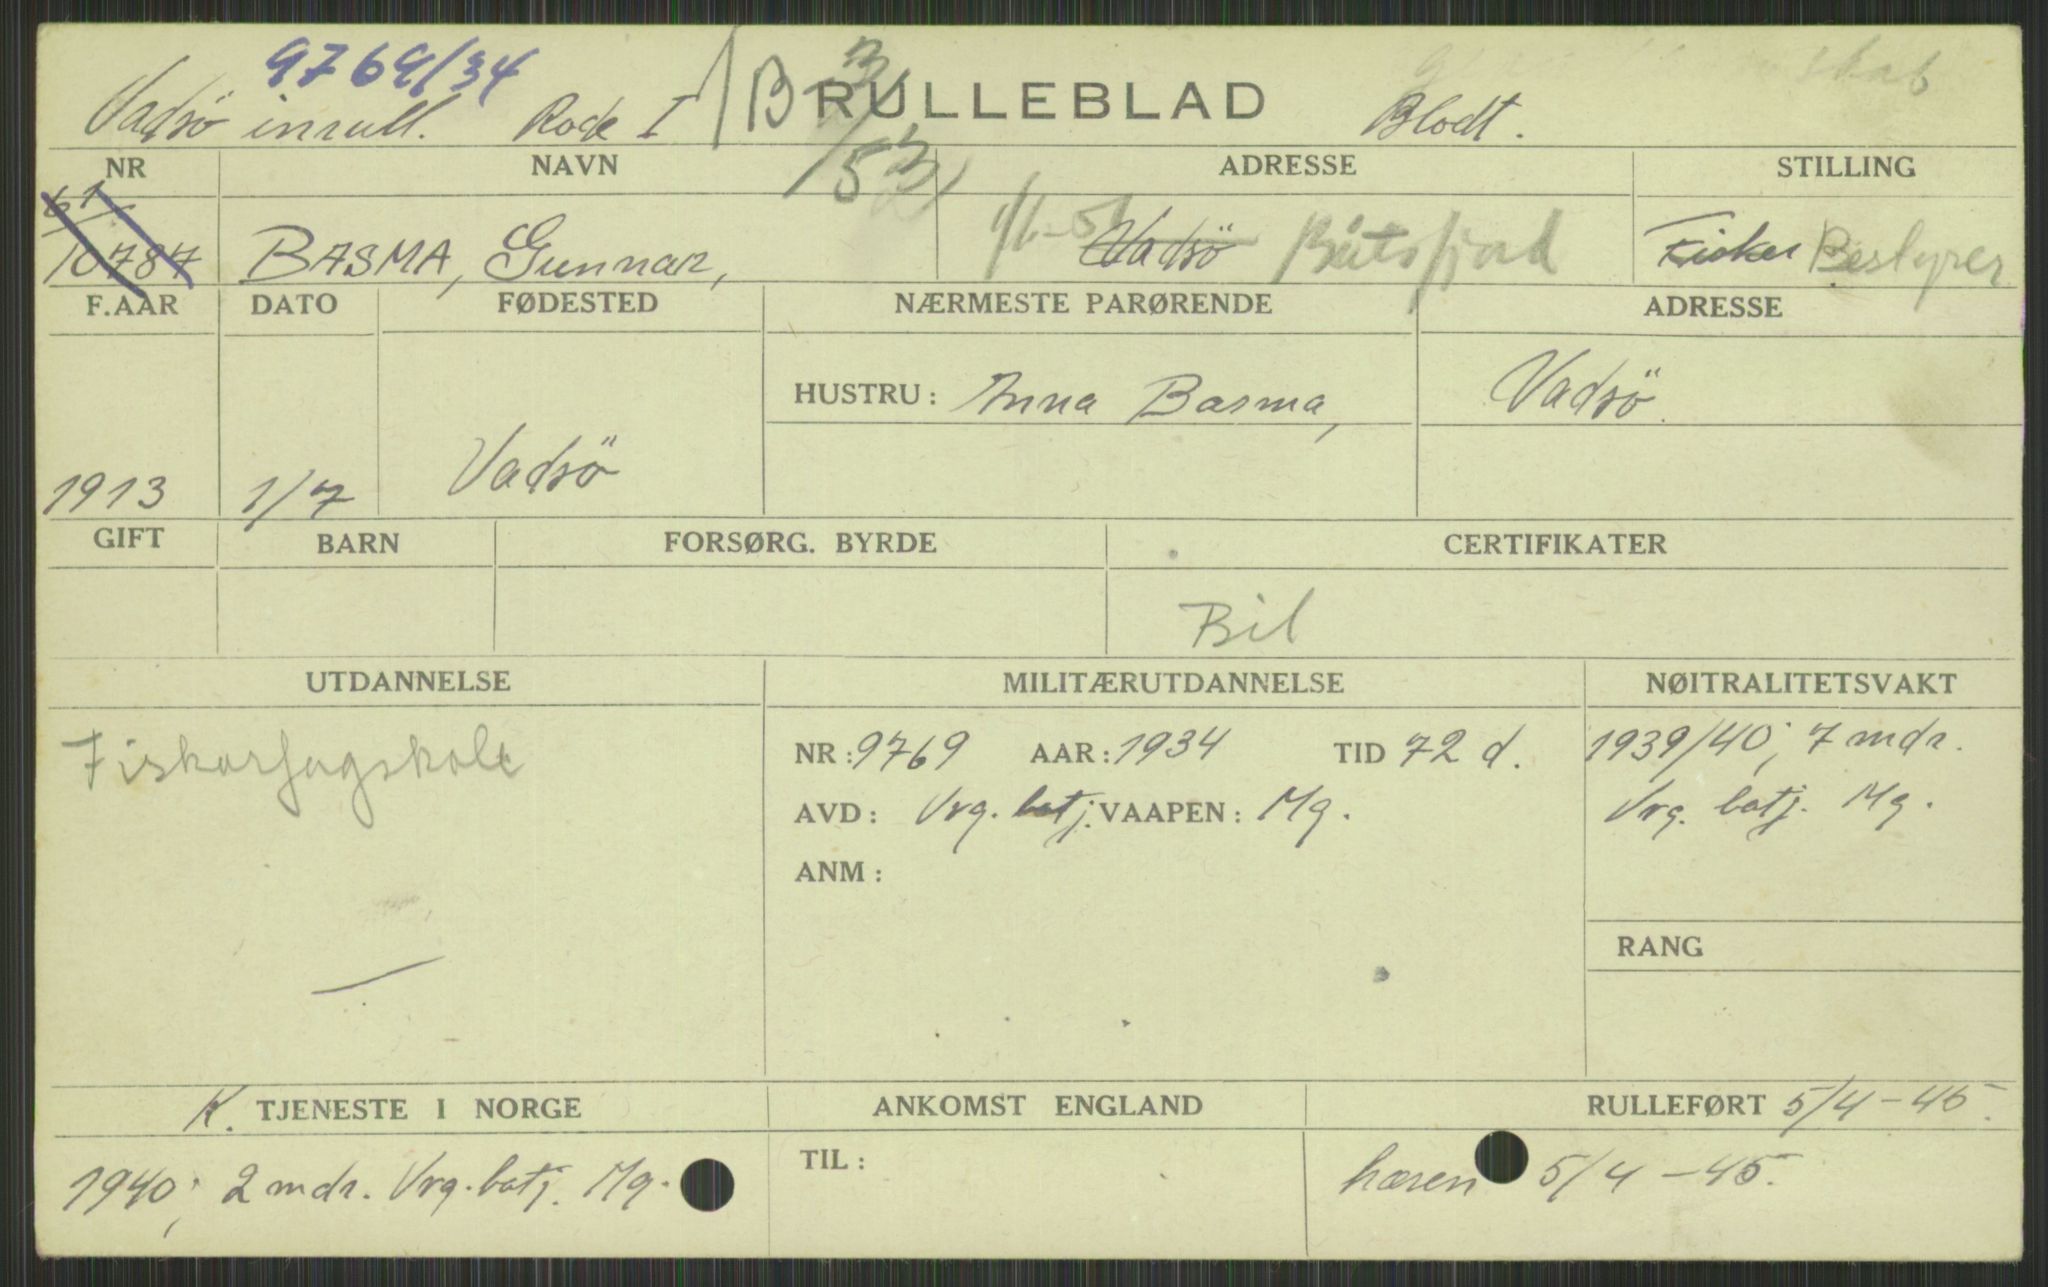 9769/34
Vadsö innrull. Rode I / B 3/53 RULLEBLAD Blodt.
NR NAVN ADRESSE STILLING
61
10787 BASMA, Gunnar, Vadsö Båtsfjord Fisker Bestyrer
F.AAR DATO FØDESTED NÆRMESTE PARØRENDE ADRESSE
HUSTRU: Anna Basma, Vadsö.
1913 1/7 Vadsö
GIFT BARN FORSØRG. BYRDE CERTIFIKATER
Bil
UTDANNELSE MILITÆRUTDANNELSE NØITRALITETSVAKT
Fiskarfagskole NR: 9769 AAR: 1934 TID 72 d. 1939/40; 7 mdr.
AVD: Vrg. batj. VAAPEN: Mg. Vrg. batj. Mg.
ANM:
RANG
K. TJENESTE I NORGE ANKOMST ENGLAND RULLEFØRT 5/4-45.
1940; 2 mdr. Vrg. batj. Mg. TIL: hæren 5/4-45.